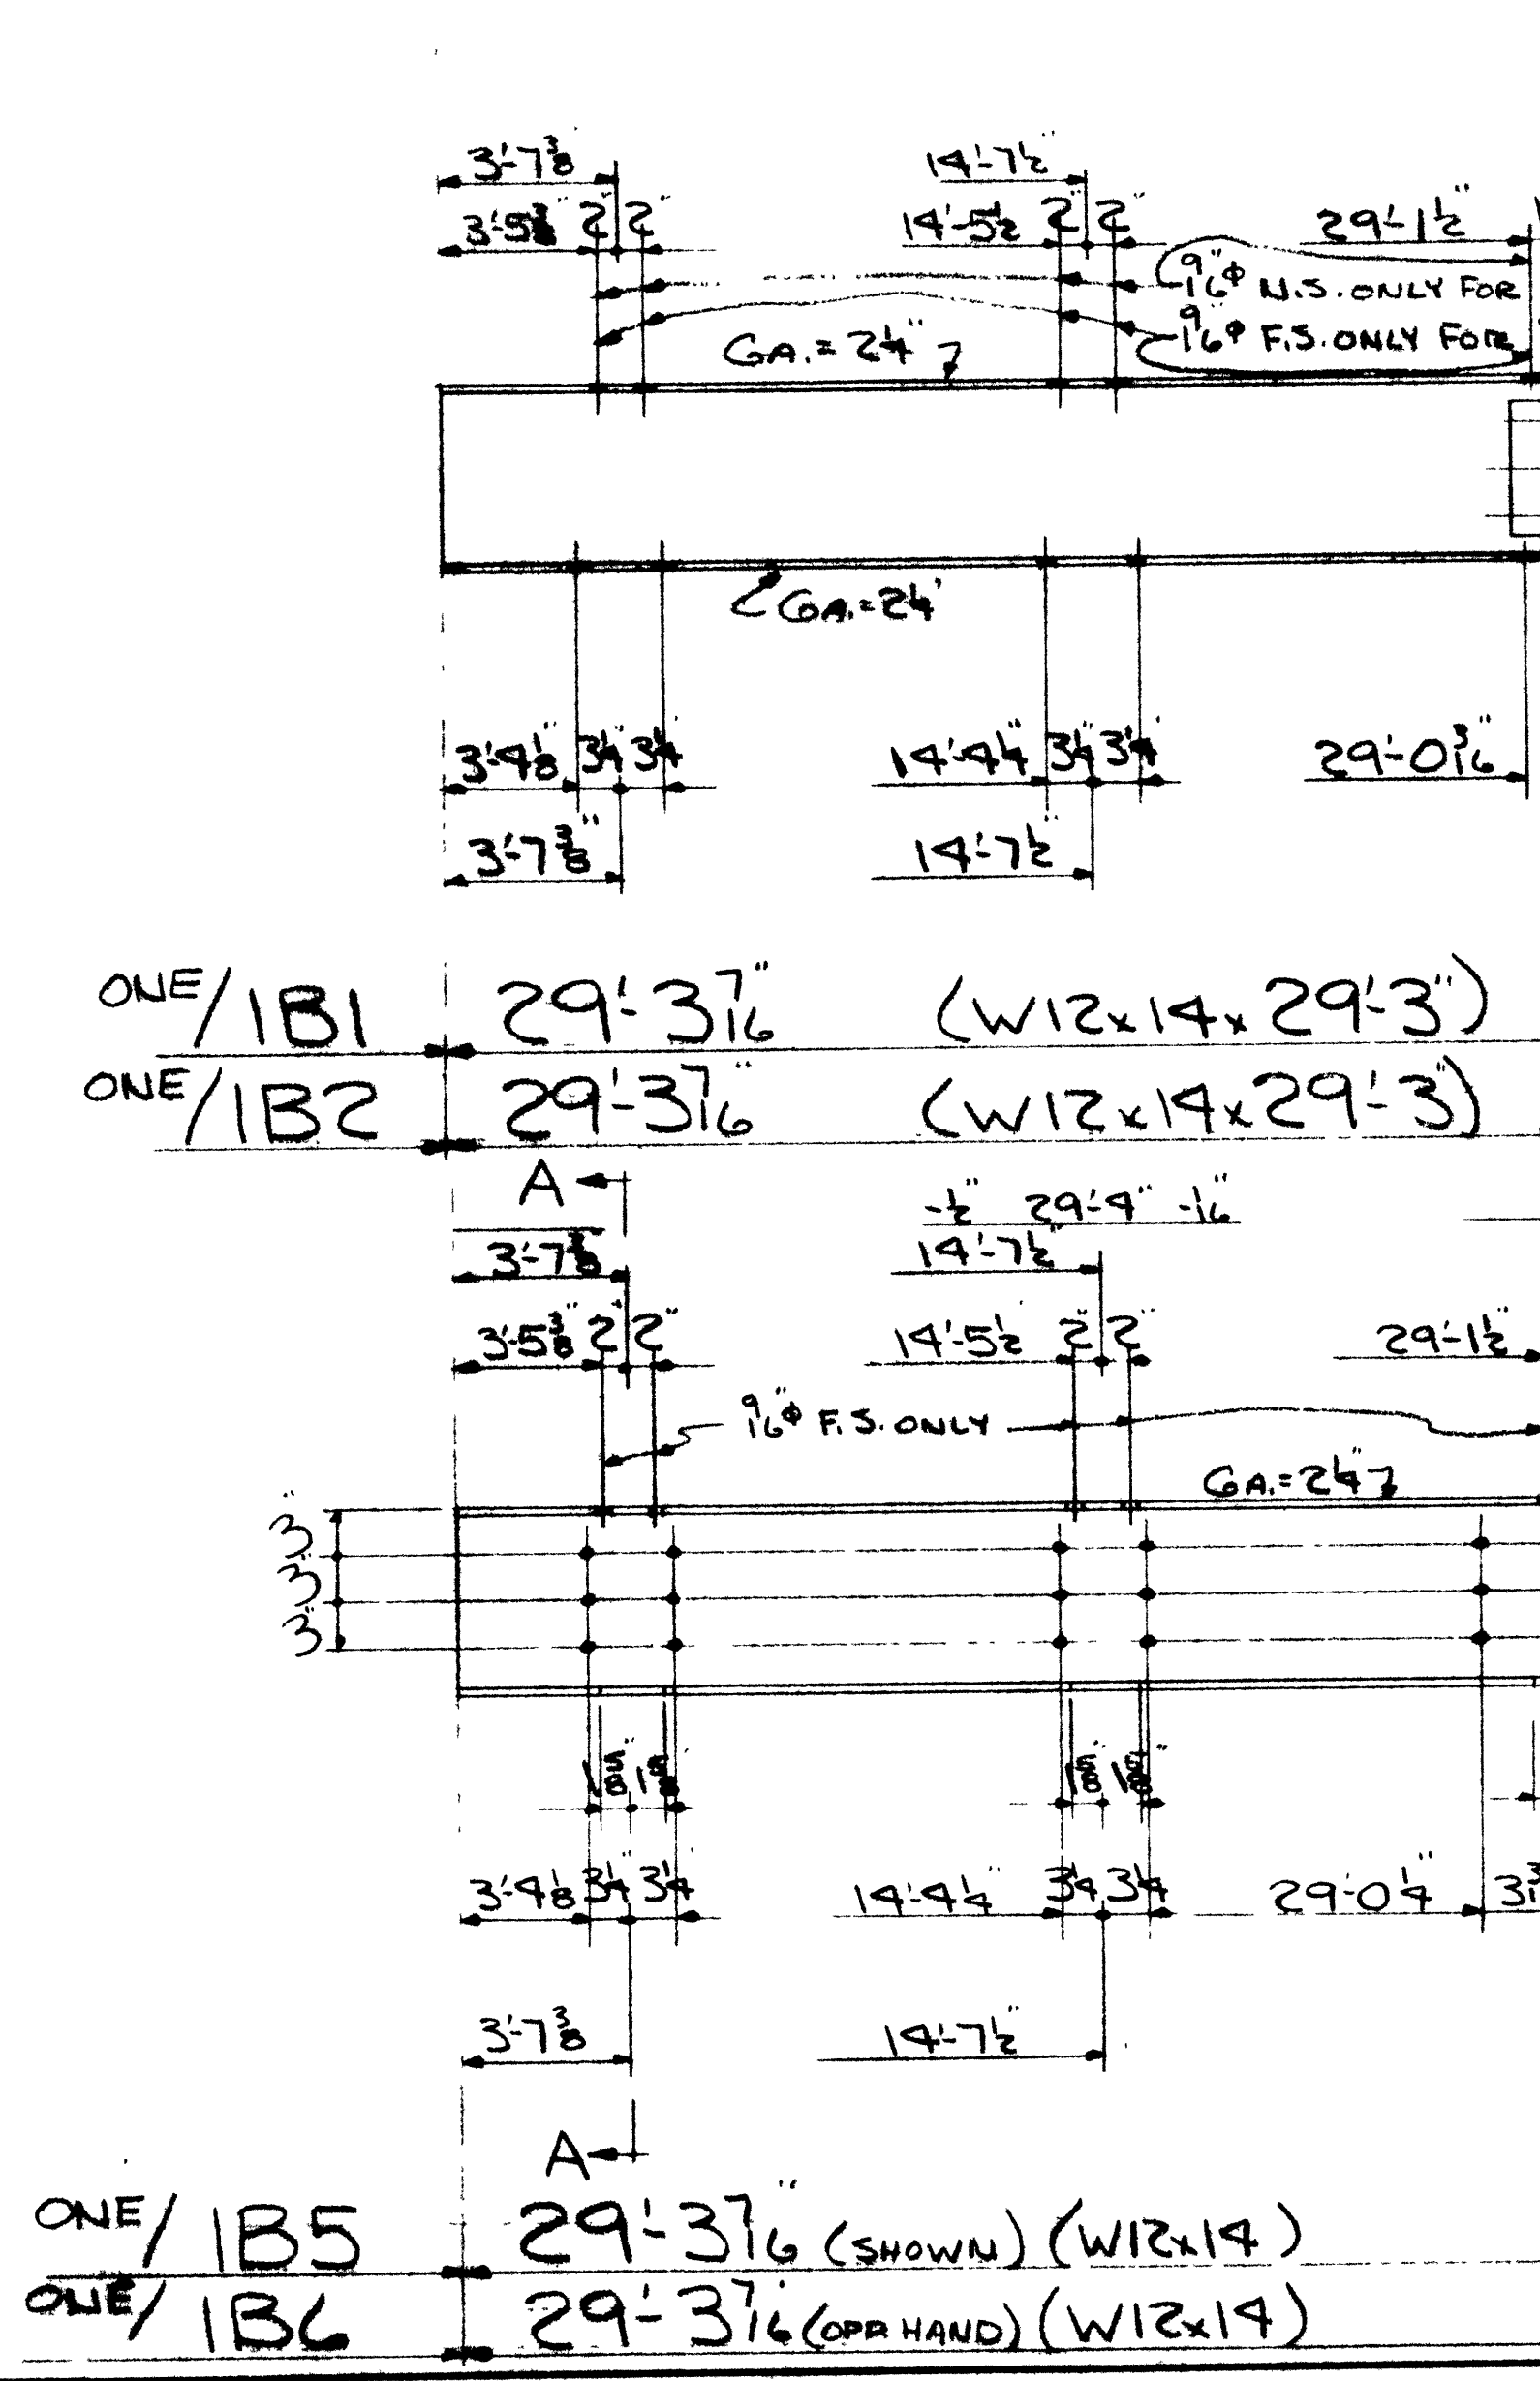 3'-7 3/8" 14'-7 1/2"
3'-5 3/8" 2" 2" 14'-5 1/2" 2" 2" 29'-1 1/2"
9/16"φ N.S. ONLY FOR
9/16"φ F.S. ONLY FOR
GA. = 2 1/4"
GA. = 2 1/4"
3'-4 1/8" 3 1/4" 3 1/4" 14'-4 1/4" 3 1/4" 3 1/4" 29'-0 3/16"
3'-7 3/8" 14'-7 1/2"
ONE/1B1 29'-3 7/16" (W12x14x29'-3")
ONE/1B2 29'-3 7/16" (W12x14x29'-3")
A
-1/2" 29'-4" -1/16"
3'-7 3/8 14'-7 1/2"
3'-5 3/8" 2" 2" 14'-5 1/2 2" 2" 29'-1 1/2"
9/16"φ F.S. ONLY
GA. = 2 1/4"
3"
3"
3"
1 5/8" 1 5/8" 1 5/8" 1 5/8"
3'-4 1/8 3 1/4" 3 1/4 14'-4 1/4" 3 1/4 3 1/4 29'-0 1/4"
3'-7 3/8 14'-7 1/2"
A
ONE/1B5 29'-3 7/16" (SHOWN) (W12x14)
ONE/1B6 29'-3 7/16 (OPP HAND) (W12x14)